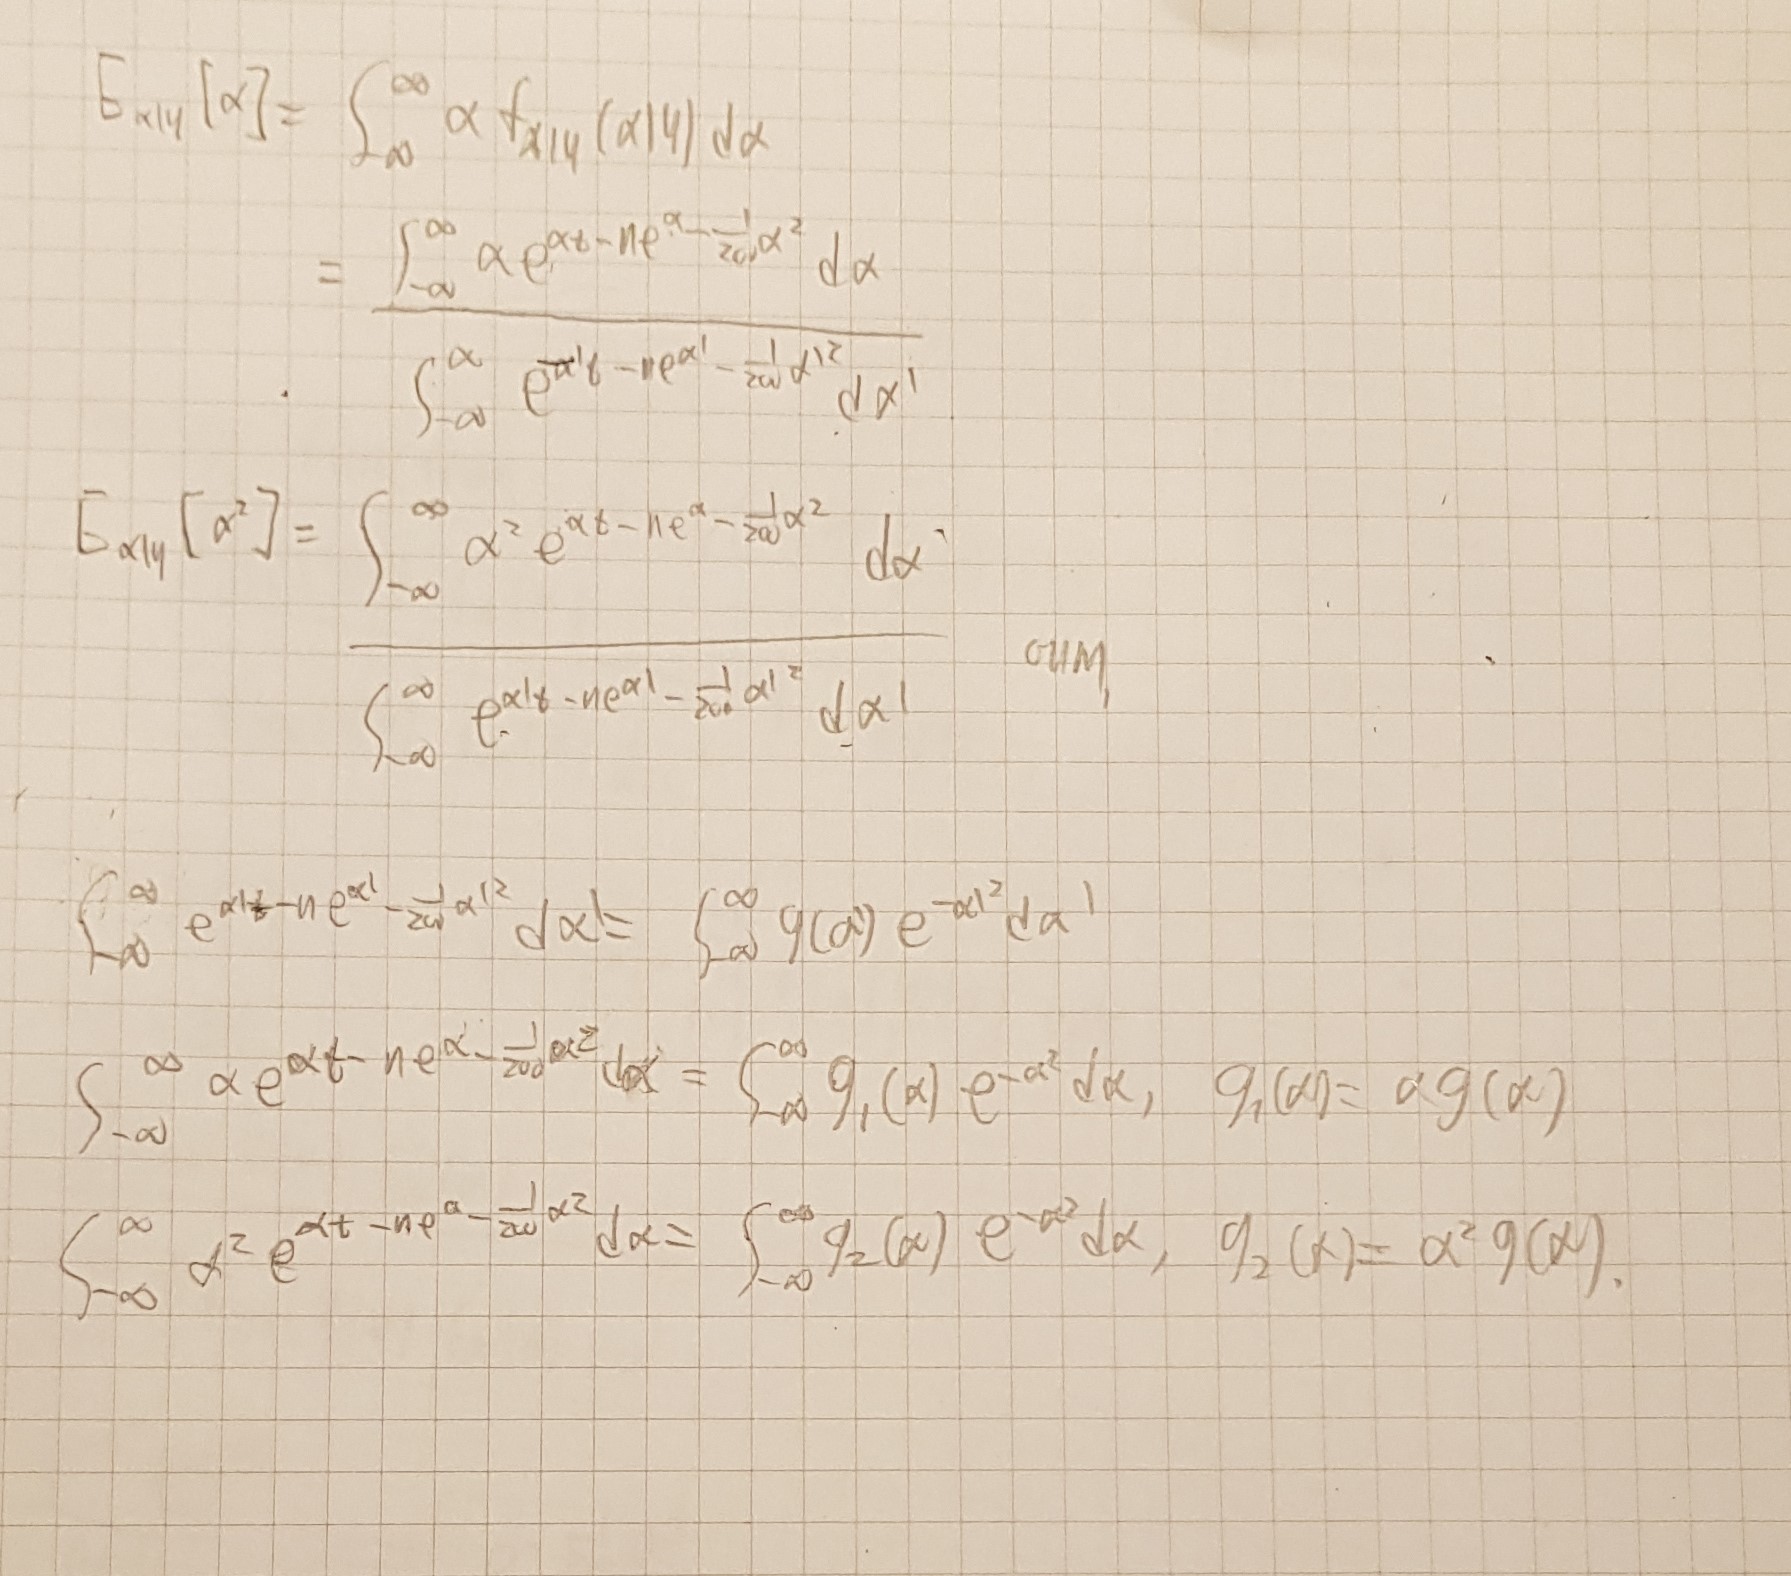 E_{α|y}[α] = ∫_{-∞}^{∞} α f_{α|y}(α|y) dα
= ∫_{-∞}^{∞} α e^{αt - ne^{α} - \frac{1}{200}α^2} dα
∫_{-∞}^{∞} e^{α't - ne^{α'} - \frac{1}{200}α'^2} dα'
E_{α|y}[α^2] = ∫_{-∞}^{∞} α^2 e^{αt - ne^{α} - \frac{1}{200}α^2} dα
∫_{-∞}^{∞} e^{α't - ne^{α'} - \frac{1}{200}α'^2} dα'
∫_{-∞}^{∞} e^{α't - ne^{α'} - \frac{1}{200}α'^2} dα' = ∫_{-∞}^{∞} g(α') e^{-α'^2} dα'
∫_{-∞}^{∞} α e^{αt - ne^{α} - \frac{1}{200}α^2} dα = ∫_{-∞}^{∞} g_1(α) e^{-α^2} dα, g_1(α) = α g(α)
∫_{-∞}^{∞} α^2 e^{αt - ne^{α} - \frac{1}{200}α^2} dα = ∫_{-∞}^{∞} g_2(α) e^{-α^2} dα, g_2(α) = α^2 g(α).